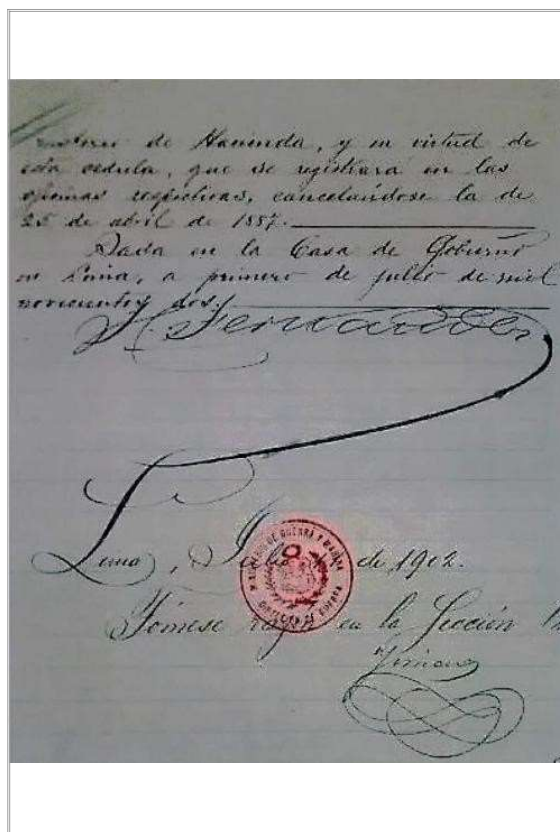 de Hacienda, y en virtud de
esta cedula, que se registrará en las
oficinas respectivas, cancelandose la de
25 de abril de 1887.
Dada en la Casa de Gobierno
en Lima, a primero de julio de mil
novecientos dos.
Fernandez
Lima, Julio de 1902.
Tómese razón en la Sección
MINISTERIO DE GUERRA Y MARINA
DIRECCION DE GUERRA